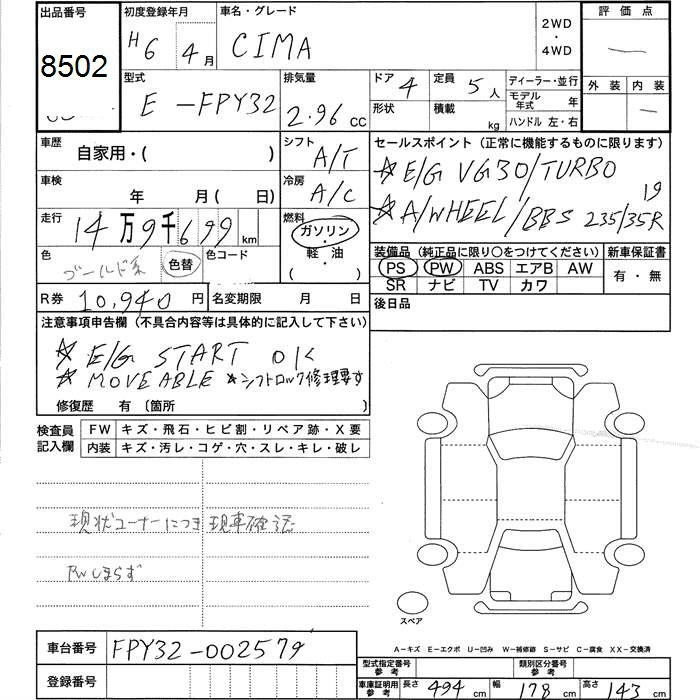 出品番号 初度登録年月 車名・グレード 2WD・4WD 評価点
8502 H6 4月 CIMA
型式 排気量 ドア 4 定員 5人 ディーラー・並行 外装 内装
E-FPY32 2.96 cc 形状 積載 kg モデル年式 年
ハンドル 左・右
車歴 自家用・( ) シフト A/T セールスポイント（正常に機能するものに限ります）
☆E/G VG30/TURBO
車検 年 月( 日) 冷房 A/C 19
☆A/WHEEL/BBS 235/35R
走行 14万9千699km 燃料 ガソリン・軽油・( )
色 ゴールド系 色替 色コード 装備品（純正品に限り○をつけてください） 新車保証書
PS PW ABS エアB AW 有・無
SR ナビ TV カワ
R券 10,940円 名変期限 月 日 後日品
注意事項申告欄（不具合内容等は具体的に記入して下さい）
☆E/G START OK
☆MOVEABLE ☆シフトロック修理要す
修復歴 有〔箇所 〕
検査員記入欄 FW キズ・飛石・ヒビ割・リペア跡・X要
内装 キズ・汚レ・コゲ・穴・スレ・キレ・破レ
現状コーナーにつき現車確認
PWしまらず
スペア
A－キズ E－エクボ U－凹み W－補修跡 S－サビ C－腐食 XX－交換済
車台番号 FPY32-002579
登録番号 型式指定番号参考 類別区分番号参考
車庫証明用参考 長さ 494cm 幅 178cm 高さ 143cm